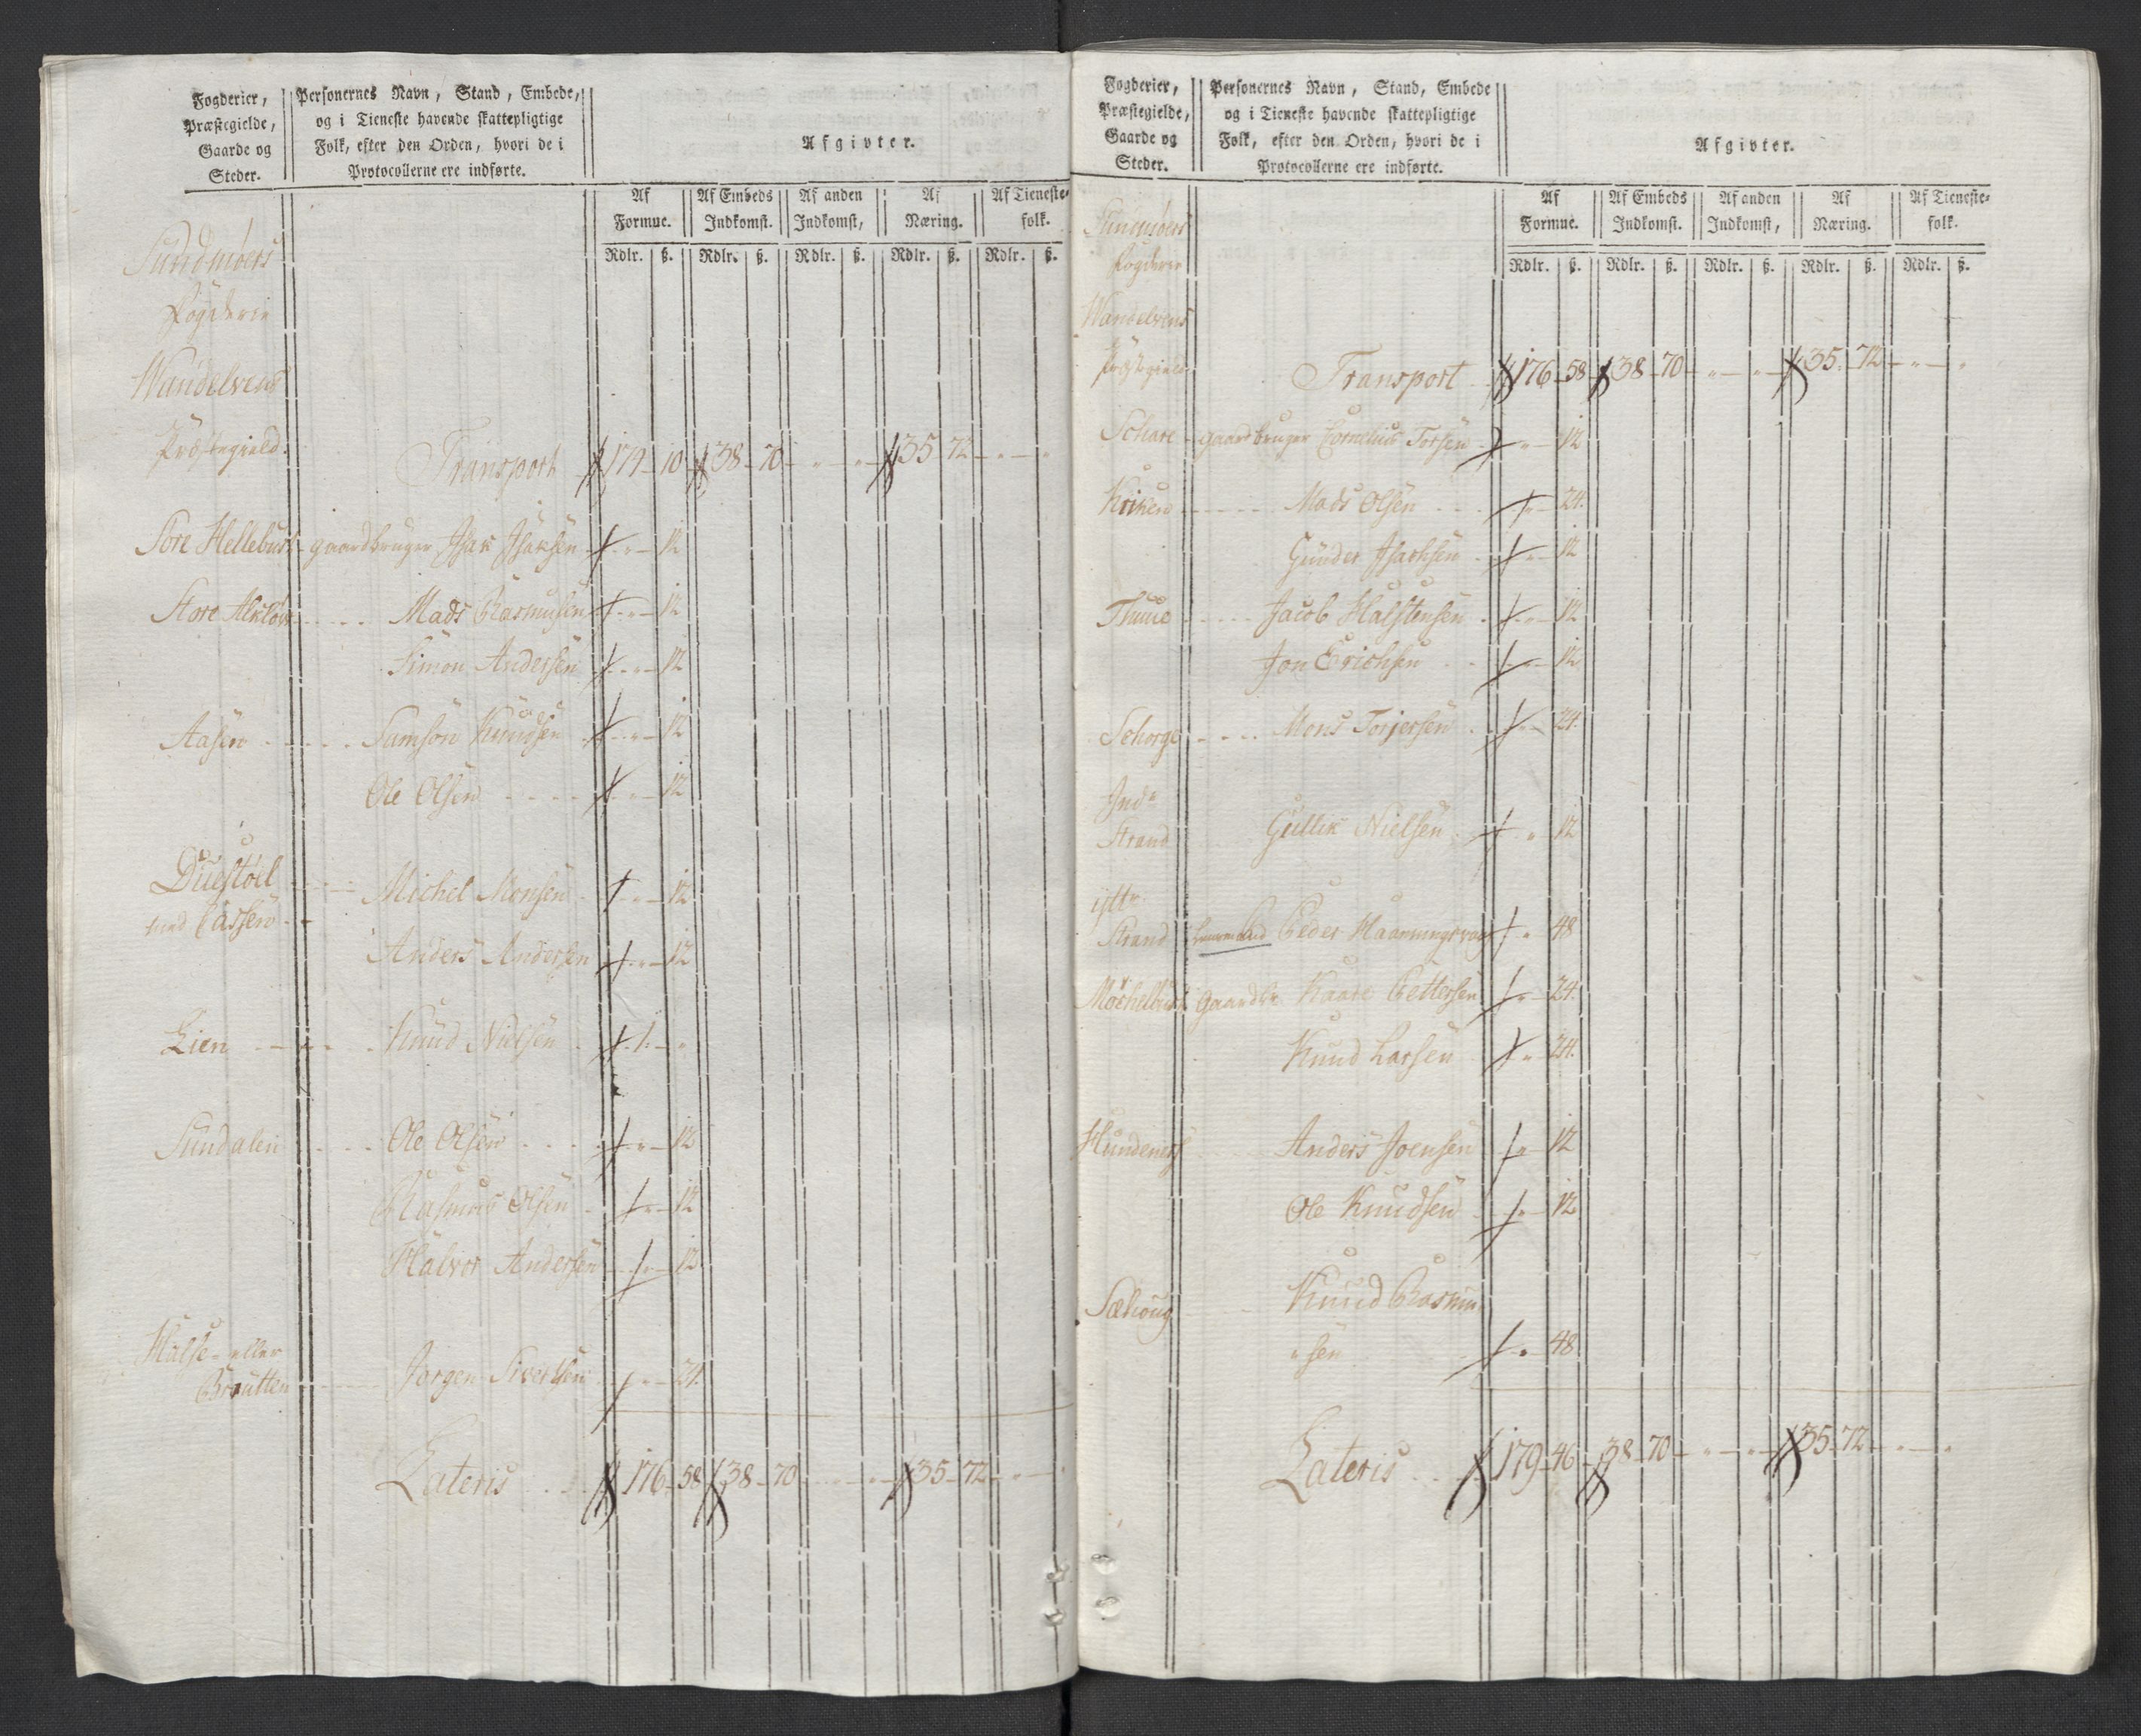 Fogderier,
Præstegielde,
Gaarde og
Steder.
Personernes Navn, Stand, Embede,
og i Tieneste havende skattepligtige
Folk, efter den Orden, hvori de i
Protocollerne ere indførte.
Afgivter.
Af
Formue.
Af Embeds
Indkomst.
Af anden
Indkomst,
Af
Næring.
Af Tieneste-
folk.
Rdlr. ß. Rdlr. ß. Rdlr. ß. Rdlr. ß. Rdlr. ß.
Sundmøers
Fogderie
Wandelvens
Præstegield.
Transport 174 - 10 - 38 - 70 - " - " - 35 - 72 - " - "
Store Hellebust - gaardbruger Isak Isaksen - " - 12
Store Alsløv - - - Mads Rasmusen - " - 12
Simon Andersen - " - 12
Aasen - - - Samson Knudsen - " - 12
Ole Olsen - - - " - 12
Duestøel - - - Michel Monsen - " - 12
med
Anders Andersen - " - 12
Lien - - - Knud Nielsen - 1 - "
Sundalen - - - Ole Olsen - - - " - 12
Rasmus Olsen - " - 12
Halvor Andersen - " - 12
Halse - eller
Broutten - - - Jørgen Sivertsen - " - 24.
Lateris . . . 176 - 58 38 - 70 - " - " - 35 - 72 - " - "
Fogderier,
Præstegielde,
Gaarde og
Steder.
Personernes Navn, Stand, Embede
og i Tieneste havende skattepligtige
Folk, efter den Orden, hvori de i
Protocollerne ere indførte.
Afgivter.
Af
Formue.
Af Embeds
Indkomst.
Af anden
Indkomst,
Af
Næring.
Af Tieneste-
folk.
Rdlr. ß. Rdlr. ß. Rdlr. ß. Rdlr. ß. Rdlr. ß.
Sundmøers
Fogderie
Wandelvens
Præstegield
Transport 176 - 58 38 - 70 - " - " - 35 - 72 - " - "
Schare - gaardbruger Cornelius Torsen - " - 12
Kriken - - - Mads Olsen - - - " - 24.
Gunder Isachsen - " - 12
Thuue - - - Jacob Halstensen - " - 12
Jon Erichsen - " - 12
Schorge - - - Mons Torjersen - " - 24.
Indr
Strand Gullik Nielsen - " - 12
Strand Lensmand Peder " 48
Møchelbust Gaardbr Kaare Pettersen " - 24.
Knud Larsen " 24.
Anders Joensen " 12
Ole Knudsen - " - 12
Sæhoug Knud Rasmu
"sen " 48
Lateris . . . 179 - 46 - 38 - 70 - " - " - 35 - 72 - " - "